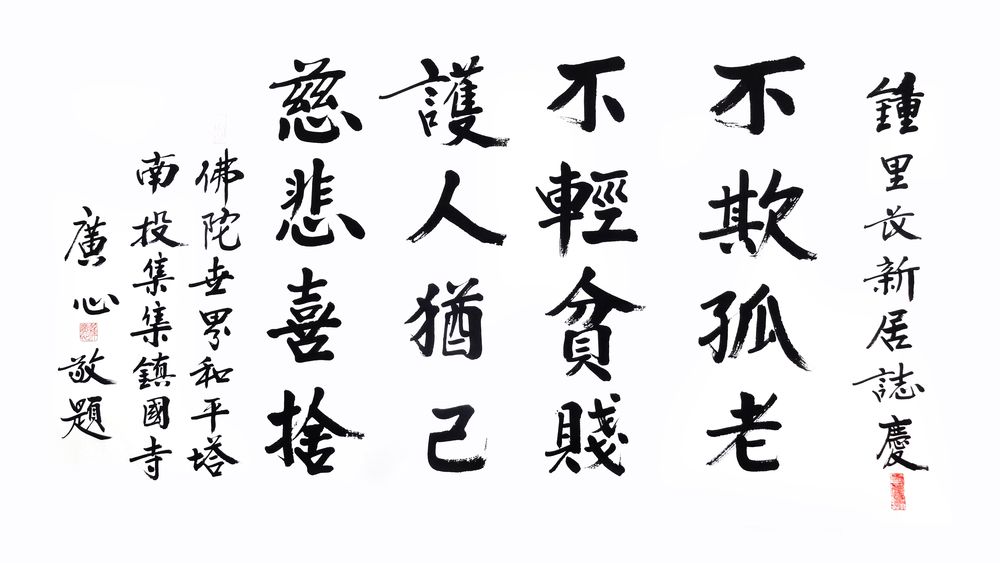 鍾里長新居誌慶
不欺孤老
不輕貧賤
護人猶己
慈悲喜捨
佛陀世界和平塔
南投集集鎮國寺
廣心敬題